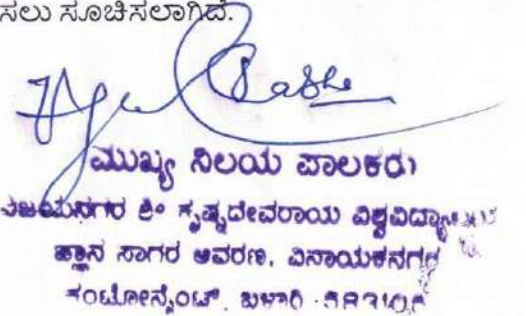 ಸಲು ಸೂಚಿಸಲಾಗಿದೆ.
ಮುಖ್ಯ ನಿಲಯ ಪಾಲಕರು
ವಿಜಯನಗರ ಶ್ರೀ ಕೃಷ್ಣದೇವರಾಯ ವಿಶ್ವವಿದ್ಯಾಲಯ
ಜ್ಞಾನ ಸಾಗರ ಆವರಣ, ವಿನಾಯಕನಗರ
ಕಂಟೋನ್ಮೆಂಟ್, ಬಳ್ಳಾರಿ